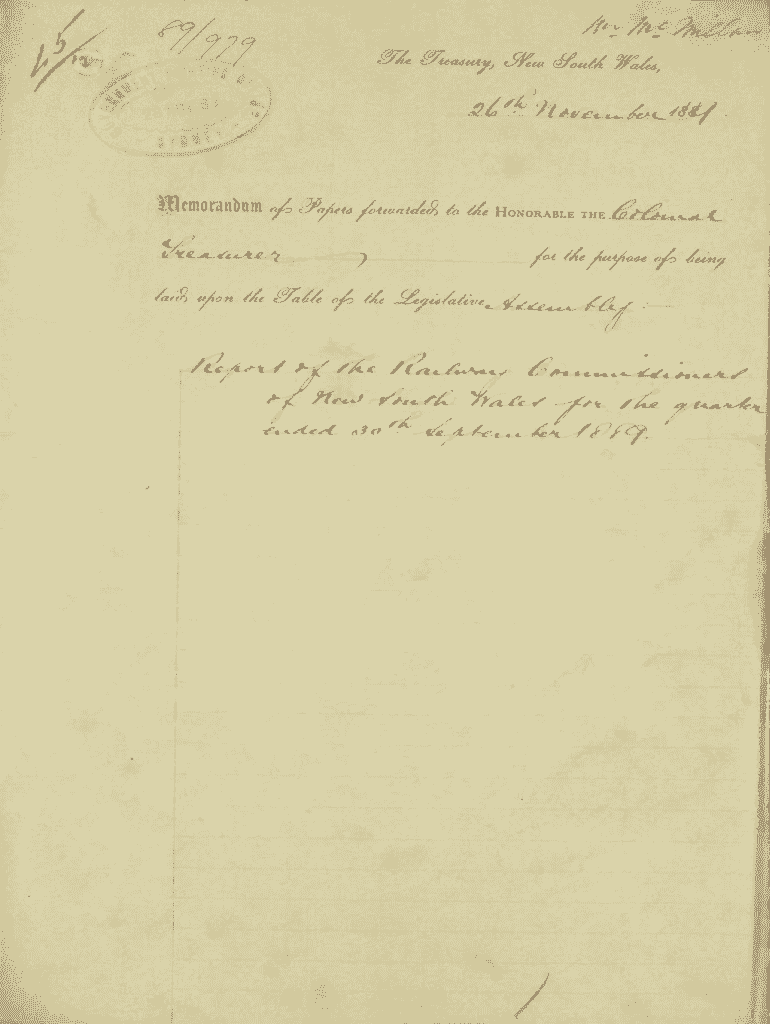 Mr McMillan
89/979
The Treasury, New South Wales,
26th November 1889
Memorandum of Papers forwarded to the HONORABLE THE Colonial
Treasurer, for the purpose of being
laid upon the Table of the Legislative Assembly
Report of the Railway Commissioners
of New South Wales for the quarter
ended 30th September 1889.